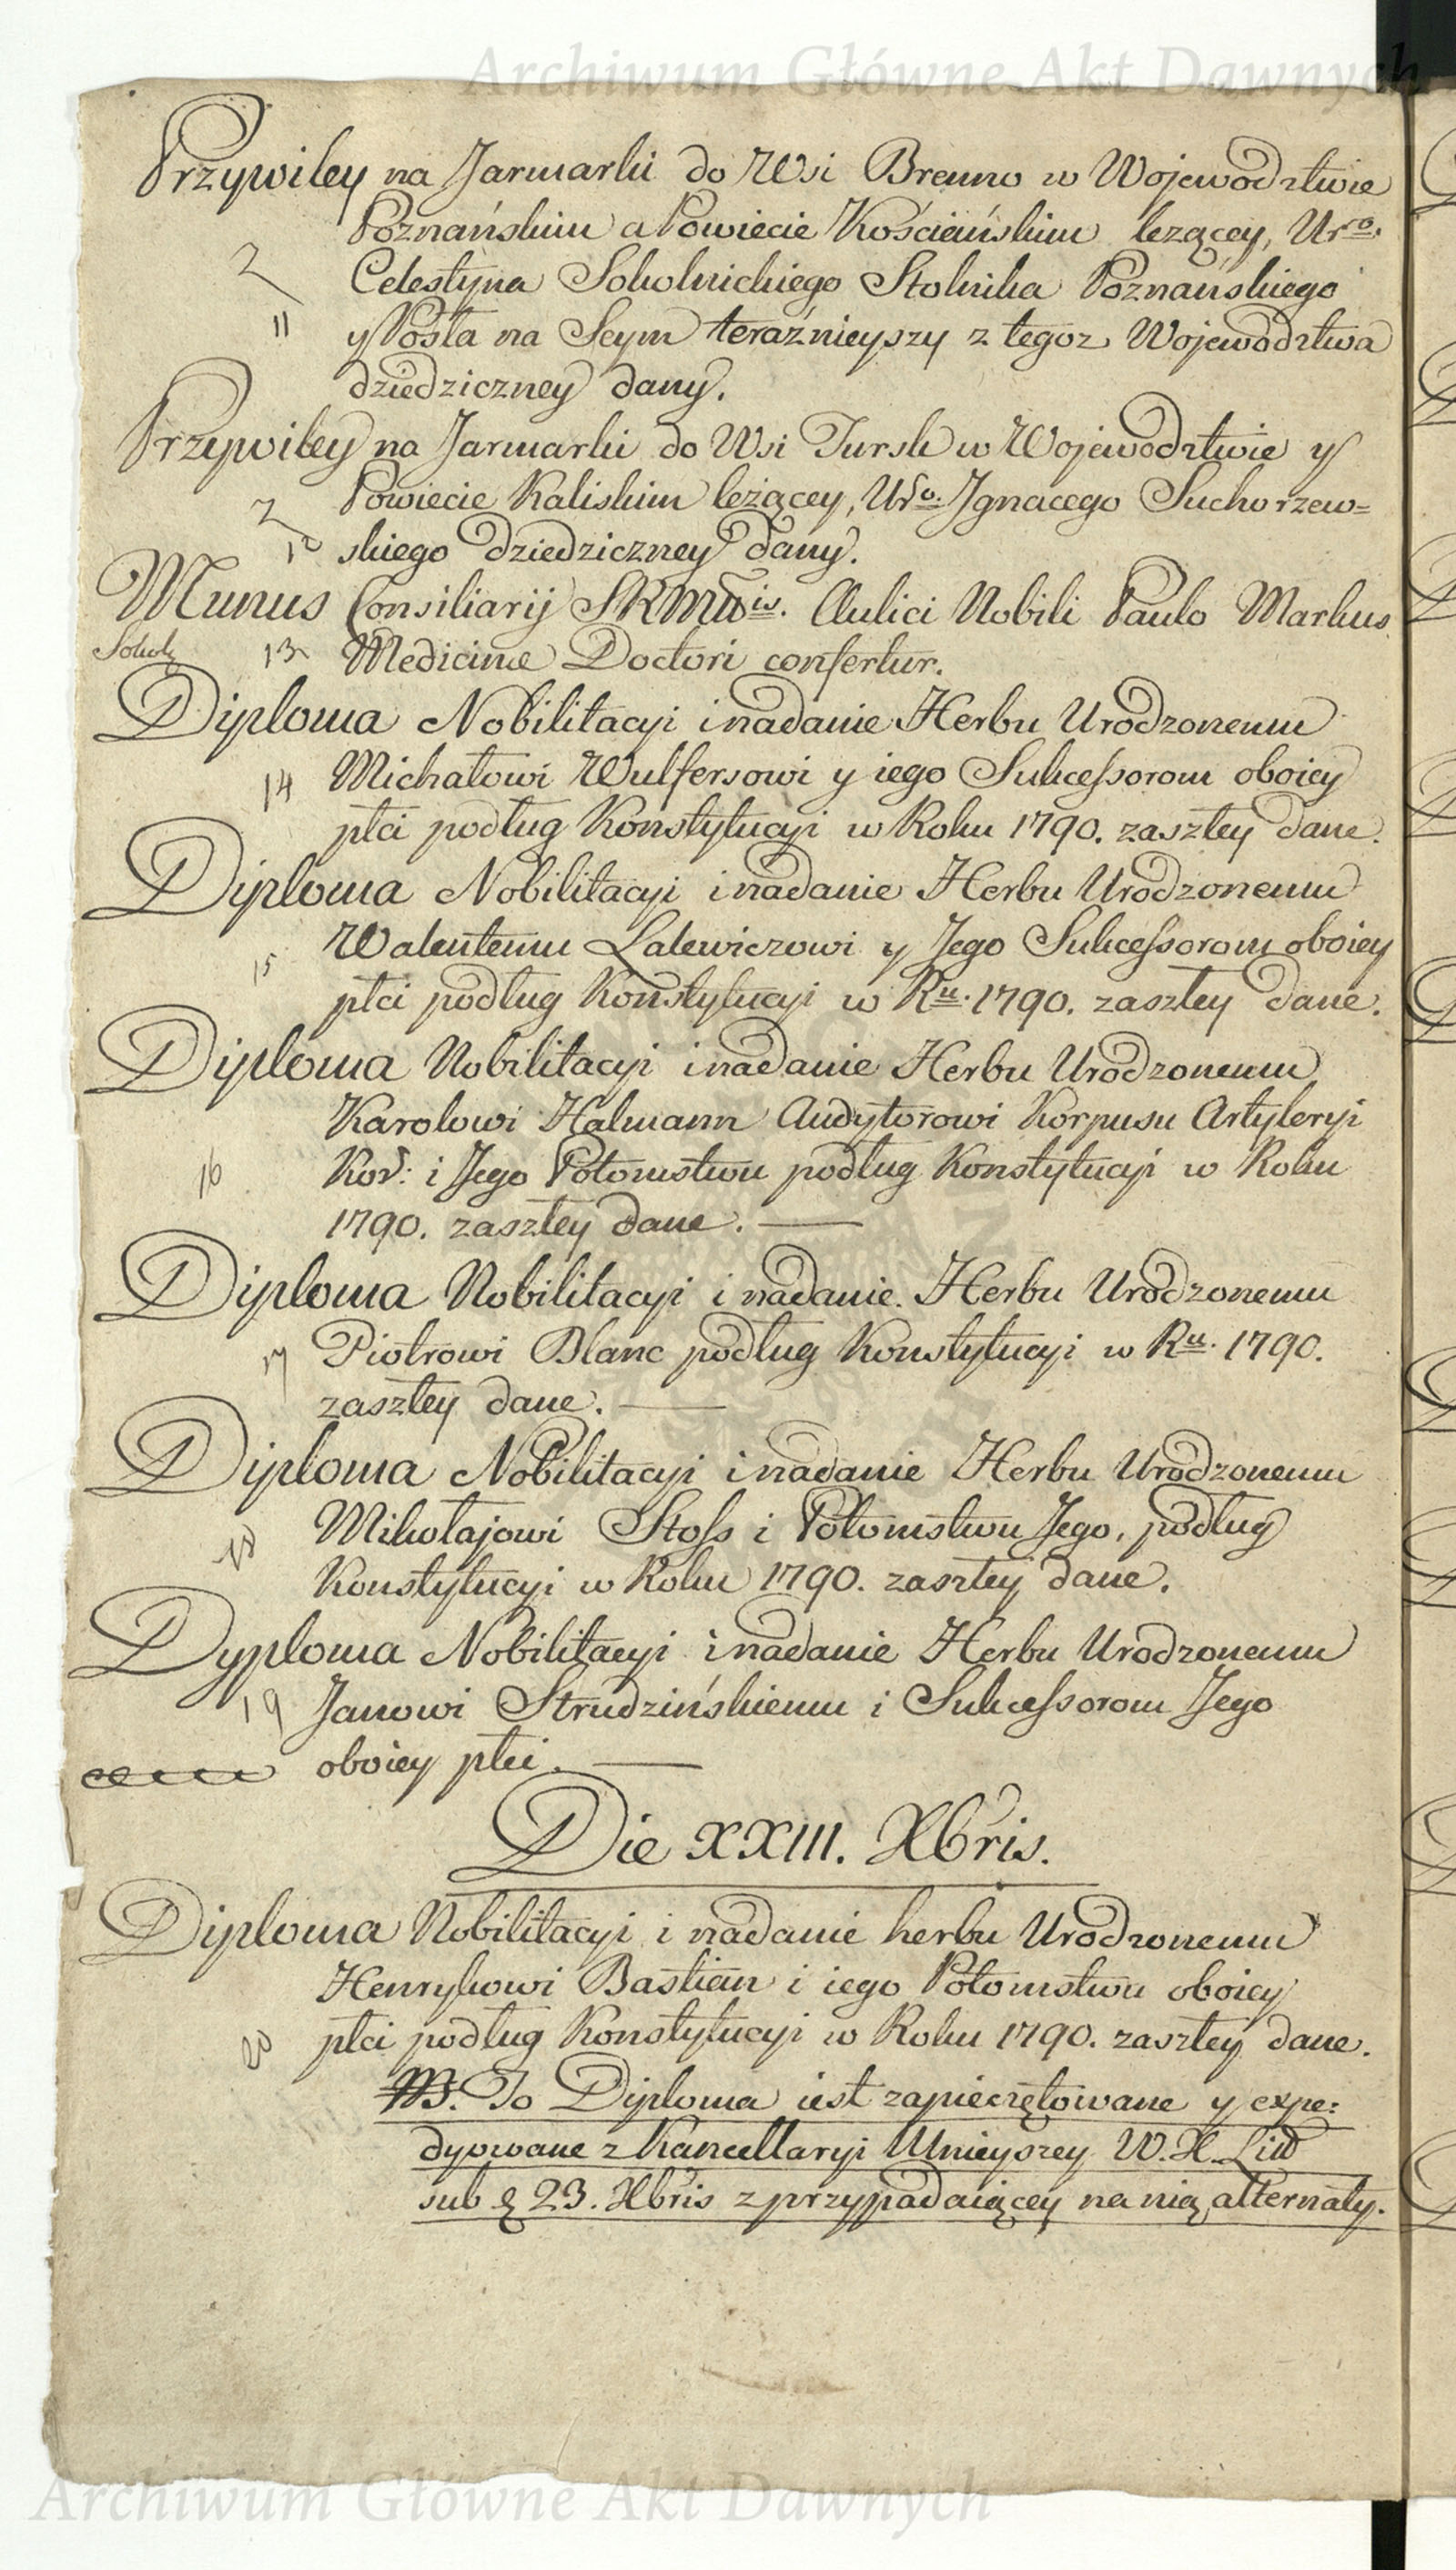 Archiwum Główne Akt Dawnych
Przywiley na Jarmarki do Wsi Brenno w Wojewodztwie
Poznańskim a Powiecie Kościańskim lezącey, Uro.
Celestyna Sokolnickiego Stolnika Poznańskiego
11 y Posła na Seym teraźnieyszy z tegoz Wojewodztwa
dziedziczney dany.
Przywiley na Jarmarki do Wsi Tursk w Wojewodztwie y
Powiecie Kaliskim leżącey, Uro. Jgnacego Suchorzew=
12 skiego dziedziczney dany.
Munus Consiliarij SRMttis. Aulici Nobili Paulo Markus
13 Medicinæ Doctori confertur.
Diploma Nobilitacyi i nadanie Herbu Urodzonemu
14 Michałowi Wulfersowi y iego Sukcessorom oboiey
płci podług Konstytucyi w Roku 1790. zaszłey dane.
Diploma Nobilitacyi i nadanie Herbu Urodzonemu
15 Walentemu Lalewiczowi y Jego Sukcessorom oboiey
płci podług Konstytucyi w Ru. 1790. zaszłey dane.
Diploma Nobilitacyi i nadanie Herbu Urodzonemu
Karolowi Halmann Audytorowi Korpusu Artyleryi
16 Kor: i Jego Potomstwu podług Konstytucyi w Roku
1790. zaszłey dane.
Diploma Nobilitacyi i nadanie Herbu Urodzonemu
17 Piotrowi Blanc podług Konstytucyi w Ru. 1790.
zaszłey dane.
Diploma Nobilitacyi i nadanie Herbu Urodzonemu
18 Mikołajowi Stoss i Potomstwu Jego, podług
Konstytucyi w Roku 1790. zaszłey dane.
Dyploma Nobilitacyi i nadanie Herbu Urodzonemu
19 Janowi Strudzińskiemu i Sukcessorom Jego
oboiey płci.
Die XXIII. Xbris.
Diploma Nobilitacyi i nadanie herbu Urodzonemu
Henrykowi Bastian i iego Potomstwu oboiey
20 płci podług Konstytucyi w Roku 1790. zaszłey dane.
To Diploma iest zapieczętowane y expe:
dyowane z Kancellaryi Mnieyszey W. X. Litt
sub 23. Xbris z przypadaiącey na nią alternaty.
Archiwum Główne Akt Dawnych